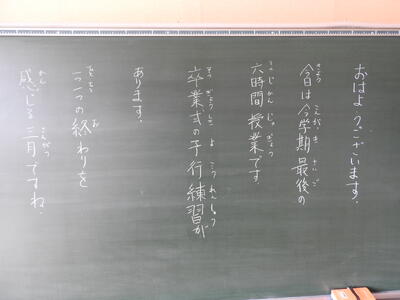 おはようございます。
今日は今学期最後の
六時間授業です。
卒業式の予行練習が
あります。
一つの終わりを
感じる三月ですね。